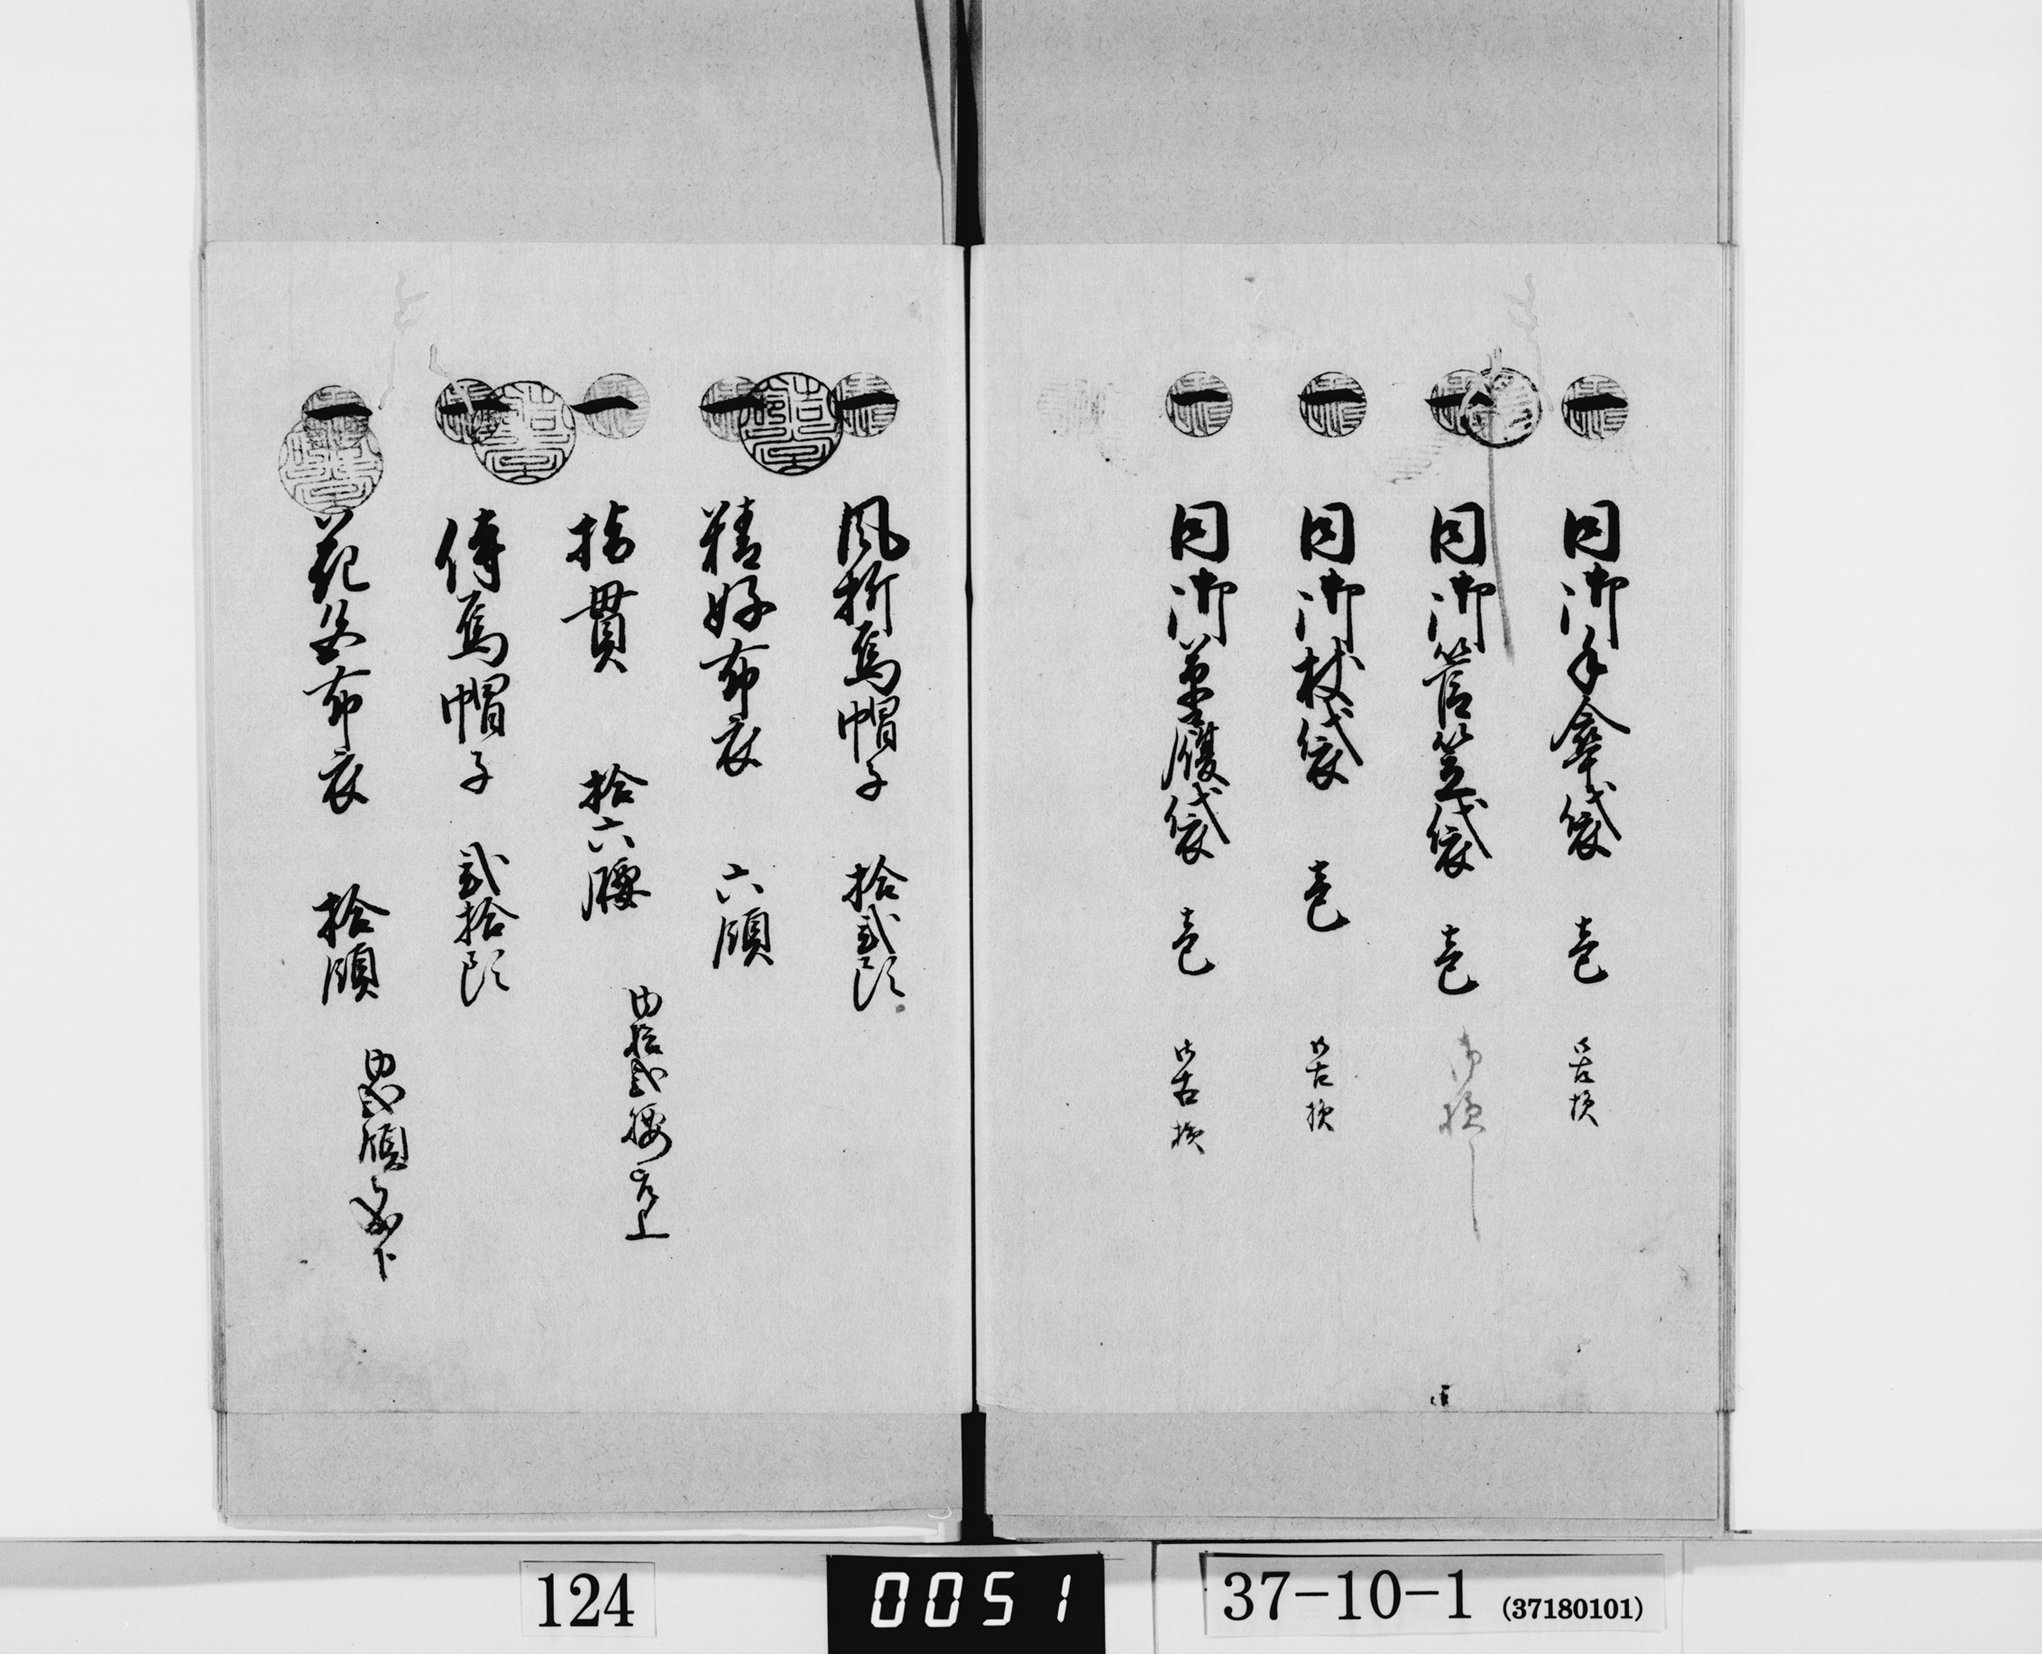 一 同御手傘袋 壱 皆古損
一 同御菅笠袋 壱 御損し
一 同御杖袋 壱 皆古損
一 同御草履袋 壱 皆古損
一 風折烏帽子 拾弐頭
一 精好布衣 六領
一 指貫 拾六腰 内拾弐腰
一 侍烏帽子 弐拾頭
一 花色布衣 拾領 内弐領
124
0051
37-10-1 (37180101)